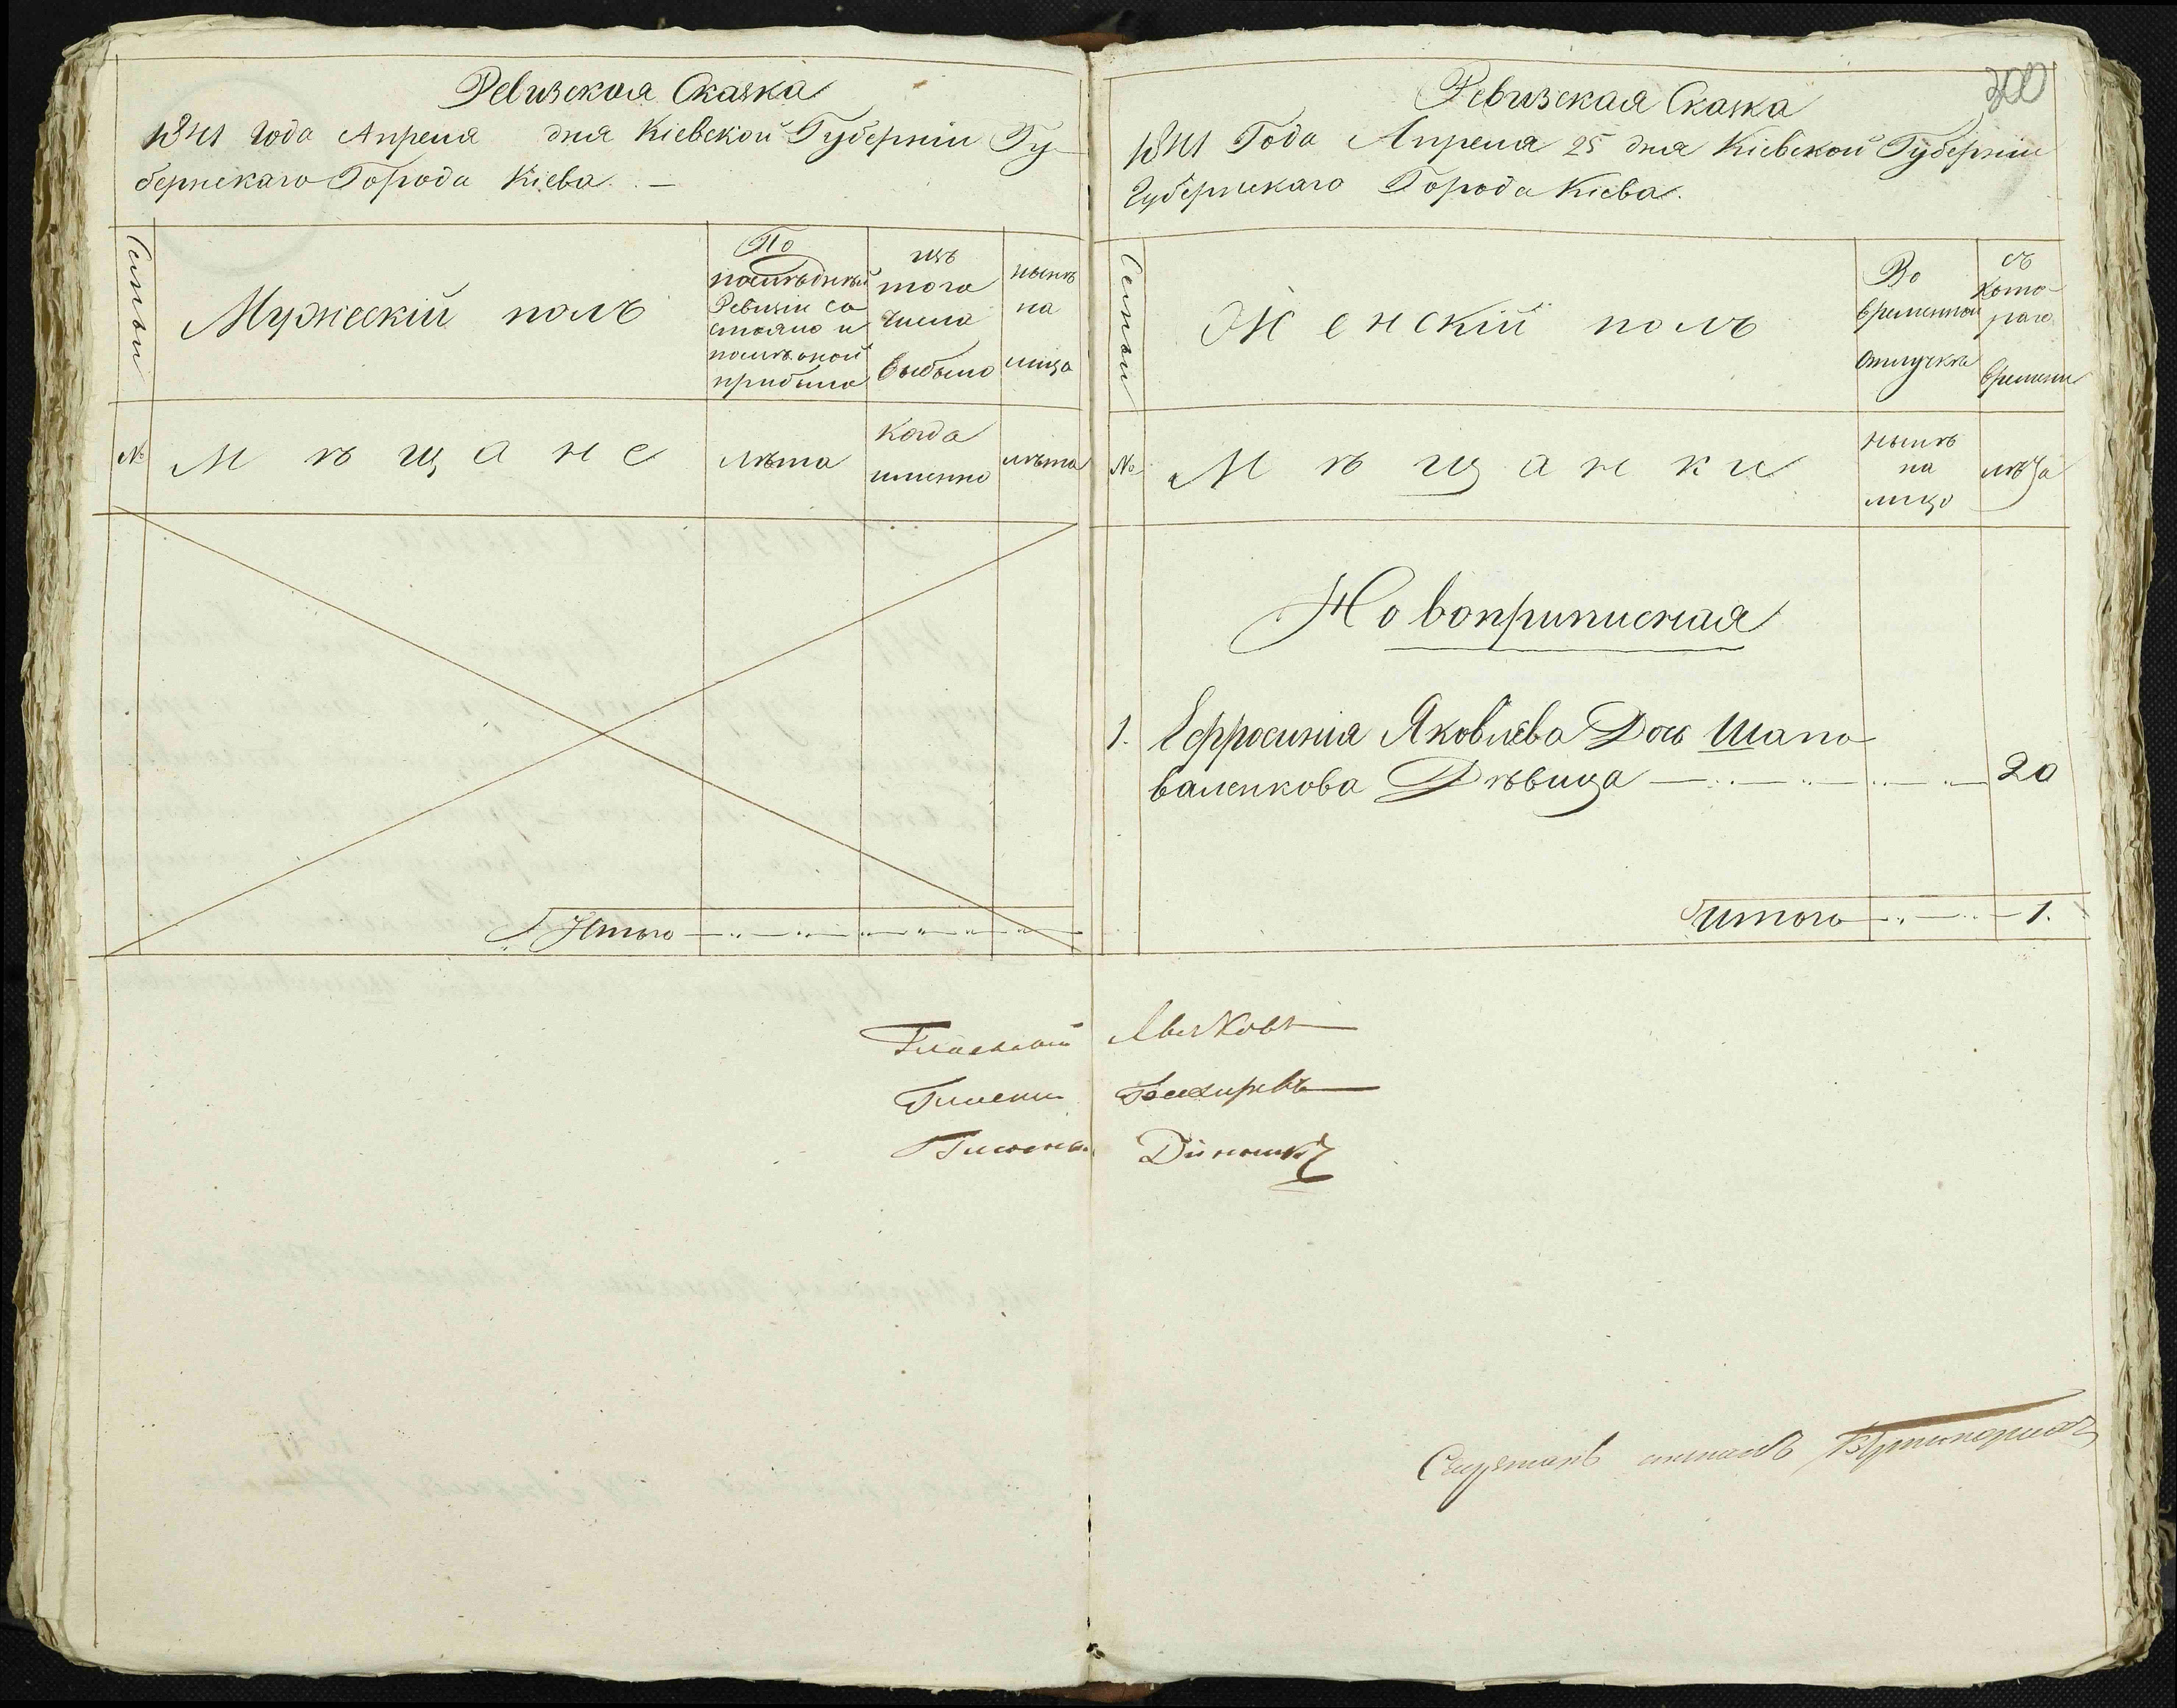 Ревизская Сказка
1841 года Апреля дня Кіевской Губерніи Гу-
бернскаго Города Кіева. —
Семьи
Мужескій полъ
По
послѣдней
Ревизіи со
стояло и
послѣ оной
прибыло
изъ
того
числа
выбыло
нынѣ
на
лицо
№
Мѣщане
лѣта
когда
именно
лѣта
Итого
300
Ревизская Сказка
1841 Года Апреля 25 дня Кіевской Губерніи
Губернскаго Города Кіева.
Семьи
Женскій полъ
Во
временной
отлучкѣ
съ
кото-
раго
времени
№
Мѣщанки
нынѣ
на
лицо
лѣта
Новоприписная
1. Ефросинія Яковлева Дочь Шапо-
валенкова Дѣвица 20
Итого 1.
Гласный
Гласный
Гласный